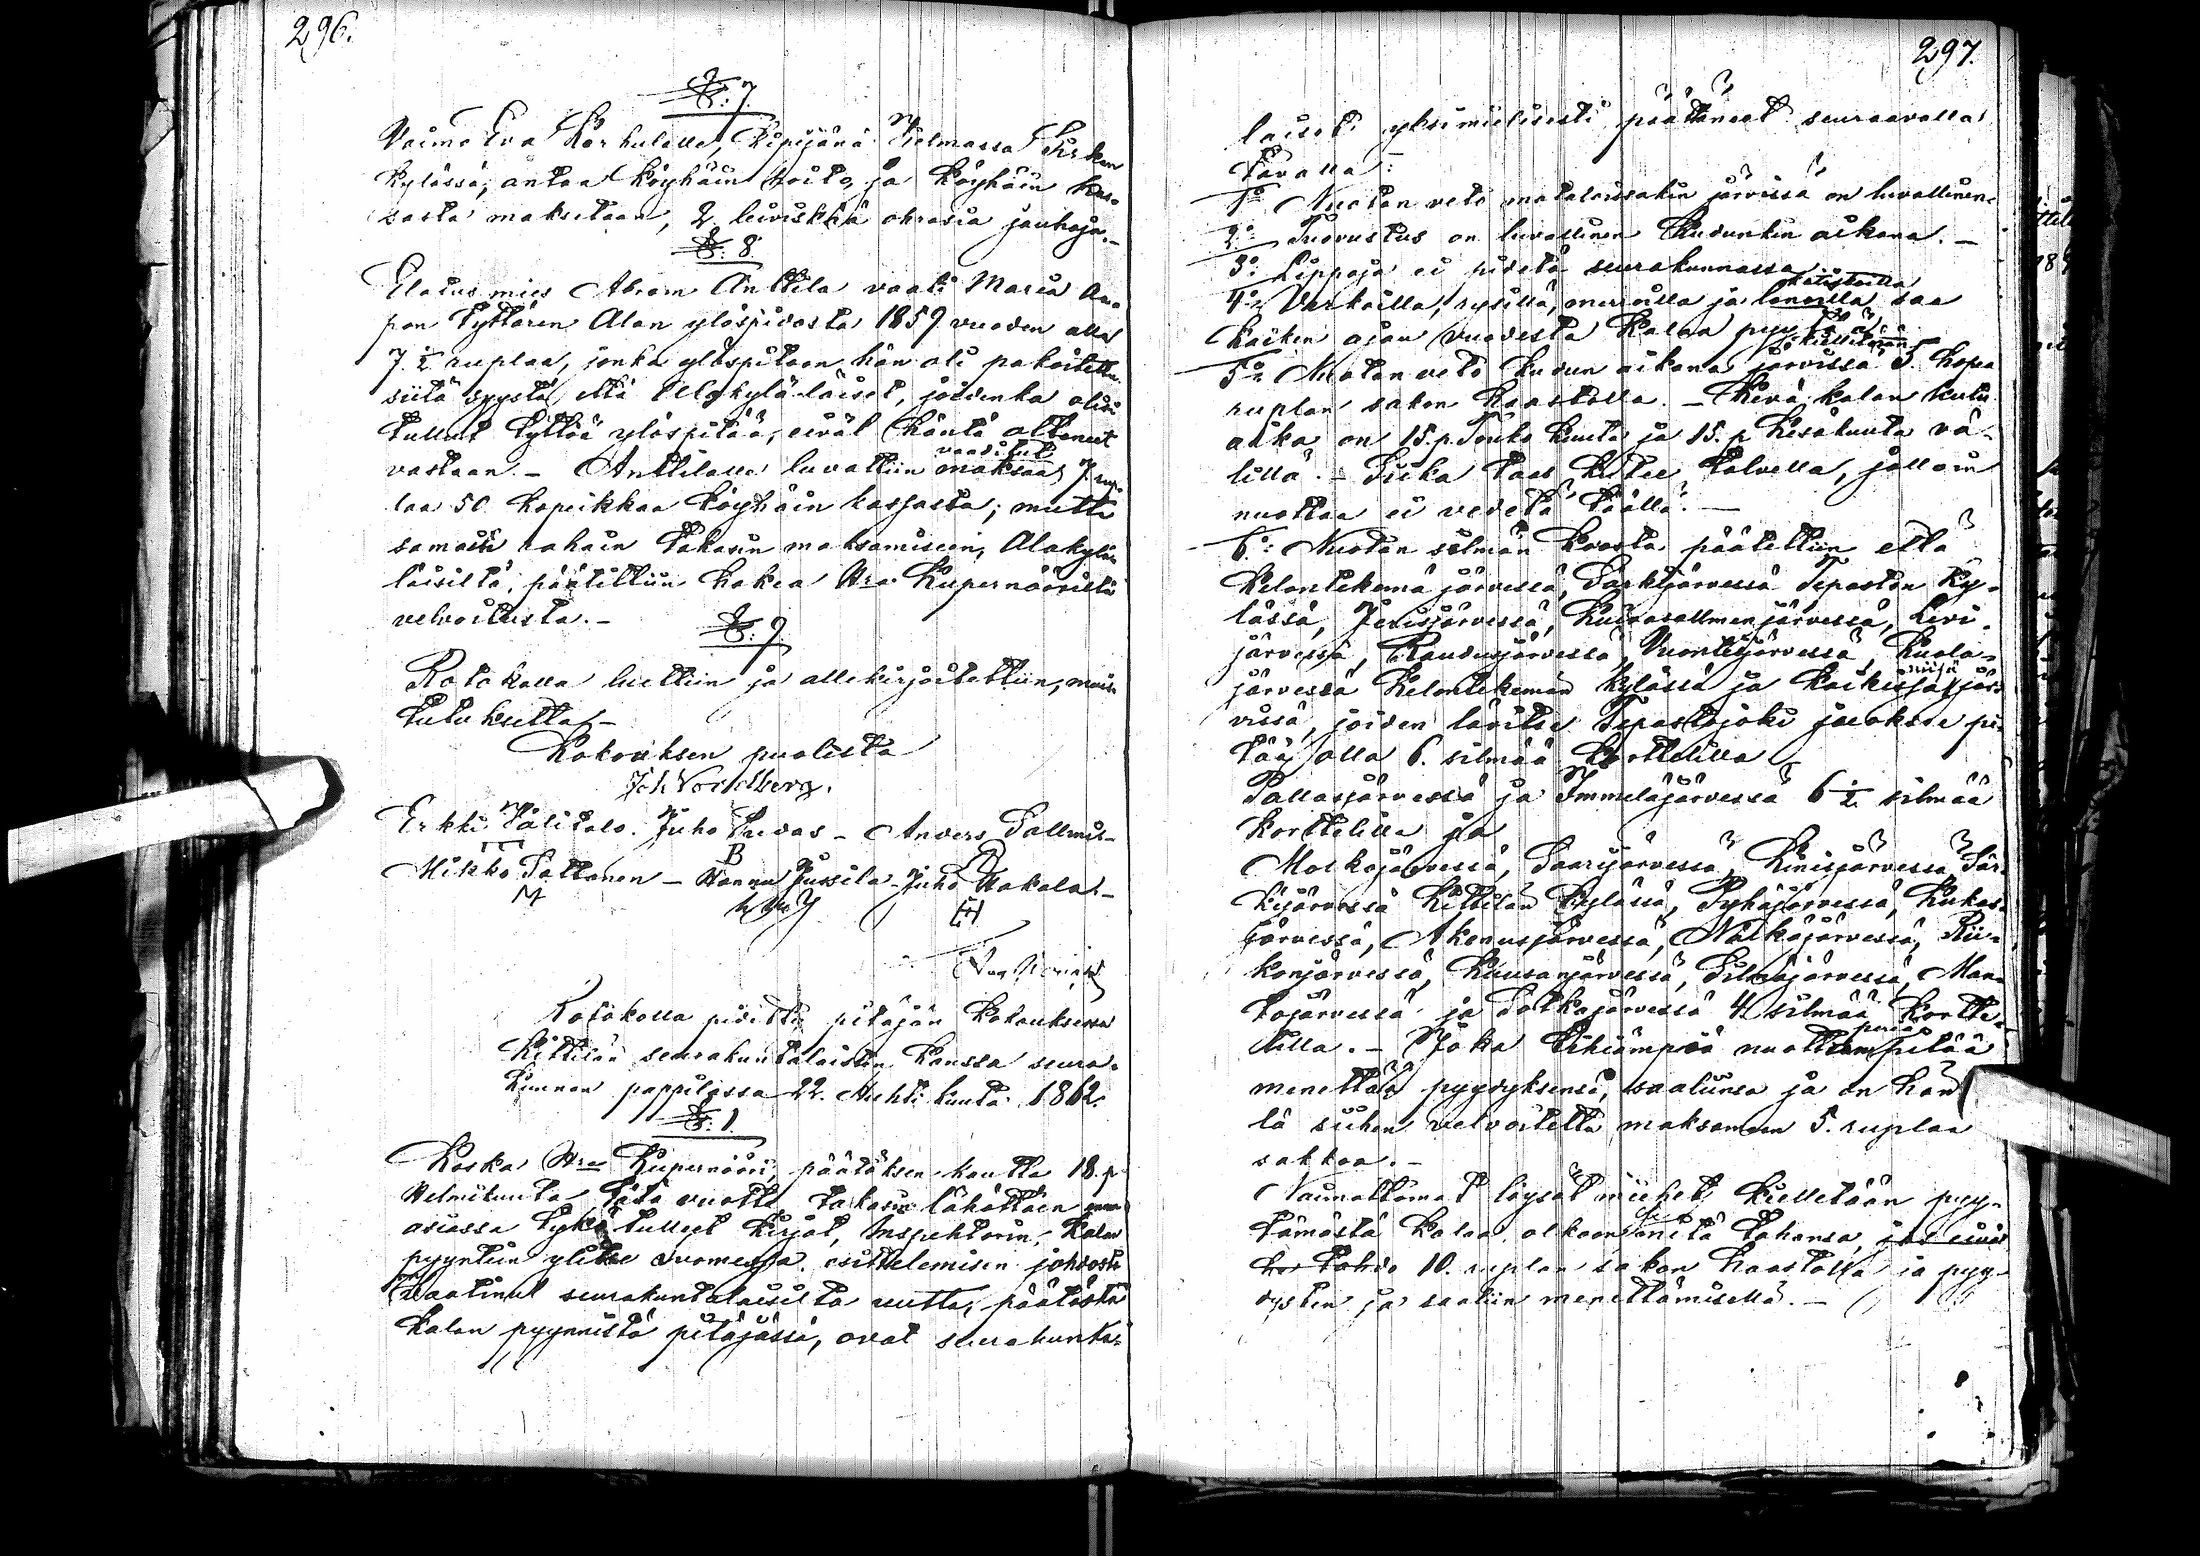 296.
§: 7.
Vaimo Eva Korhulalle, kipijänä Kirkon
kylässä, antaa köyhäin hoito, ja köyhäin kas-
sasta maksetaan, 2 leiviskää ohrasia jauhoja. –
§: 8.
Elatus mies Abram Anttila vaati Maria Aa-
pon tyttären Alan ylöspidosta 1859 vuoden alla
7 ½ ruplaa, jonka ylöspitoon hän oli pakoitettu
siitä syystä, että Alakyläläiset, joidenka olisi
tullut tyttöä ylöspitää, eivät häntä ottaneet
vastaan. – Anttilalle luvattiin vaaditut maksaa 7 rup-
laa 50 kopeikkaa köyhäin kassasta; mutta
samain rahain takasin maksamiseen, Alakylä-
läisiltä, päätettiin hakea Hra Kupernööriltä
velvoitusta. –
§: 9
Rotokolla luettiin ja allekirjoitettiin, muis-
tutuksetta. –
Kokouksen puolesta
Joh Nordberg.
Erkki Välitalo. Juho Taivas – Anders
Mikko Pattanen – Hannu Jussila – Juho Hakala. –
Rotokolla pidetty pitäjän kokouksessa
Kittilän seurakuntalaisten kanssa seura-
kunnan pappilassa 22. Huhti kuuta 1862.
§: 1.
Koska Hra Kupernööri, päätöksen kautta 18. p.
Helmikuuta tätä vuotta, takasin lähättäin
asiassa tykö tulleet kirjat, Inspehtorin, kalan
pyyntiin ylitse Suomessa, esittelemisen johdosta
vaatinut seurakuntalaisilta uutta, päätöstä
kalan pyynnistä pitäjässä, ovat seurakunta-
297.
laiset yksimielisesti päättäneet seuraavalla
tavalla:
1o: Nuotan veto matalaissakin järvissä on luvallinen.
2o: Tuovustus on luvallinen kudunkin aikana. –
3o: Lippoja ei pidetä seurakunnassa.
4o: Verkoilla, rysillä, merroilla ja katiskoilla saa
kaiken ajan vuodesta kalaa pyytää
5o: Nuotan veto kudun aikana järvissä kielletään 5. hopea
ruplan sakon haastolla. – Kevä kalan kutu
aika on 15. p. Touko kuuta ja 15. p. Kesäkuuta vä-
lillä. – Siika taas kutee talvella, jolloin
nuottaa ei vedetä täällä. –
6o: Nuotan silmän koosta päätettiin että
Kelontekemä järvessä, Särkijärvessä Tepaston ky-
lässä, Jerisjärvessä, järvessä, Levi-
järvessä, Raudusjärvessä, Vuontisjärvessä, Kuola-
järvessä Kelontekemän kylässä ja kaikissa niissä jär-
vissä, joiden lävitse Tepastojoki juoksee pi-
tää olla 6. silmää korttelilla
Pallasjärvessä ja Immeläjärvessä 6 ½ silmää
korttelilla ja
Molkojärvessä, Saarijärvessä, Kinisjärvessä Sär-
kijärvessä Kittilän kylässä, Pyhäjärvessä, Kukas-
järvessä, Akanusjärvessä, Nälkäjärvessä, Rii-
konjärvessä, Kuusanjärvessä, Silmäsjärvessä, Man-
tojärvessä ja Sotkajärvessä 4 silmää kortte-
lilla. – Joka tihiämpää nuottaa pitää
menettää pyydyksensä, saaliinsa ja on hän
tä siihen velvoitettu maksamaan 5. ruplaa
sakkoa. –
Vaimottomat löysät miehet kielletään pyy-
tämästä kalaa, olkoon mitä tahansa,
10. ruplan sakon haastolla ja pyy-
dysten ja saaliin menettämisellä. –